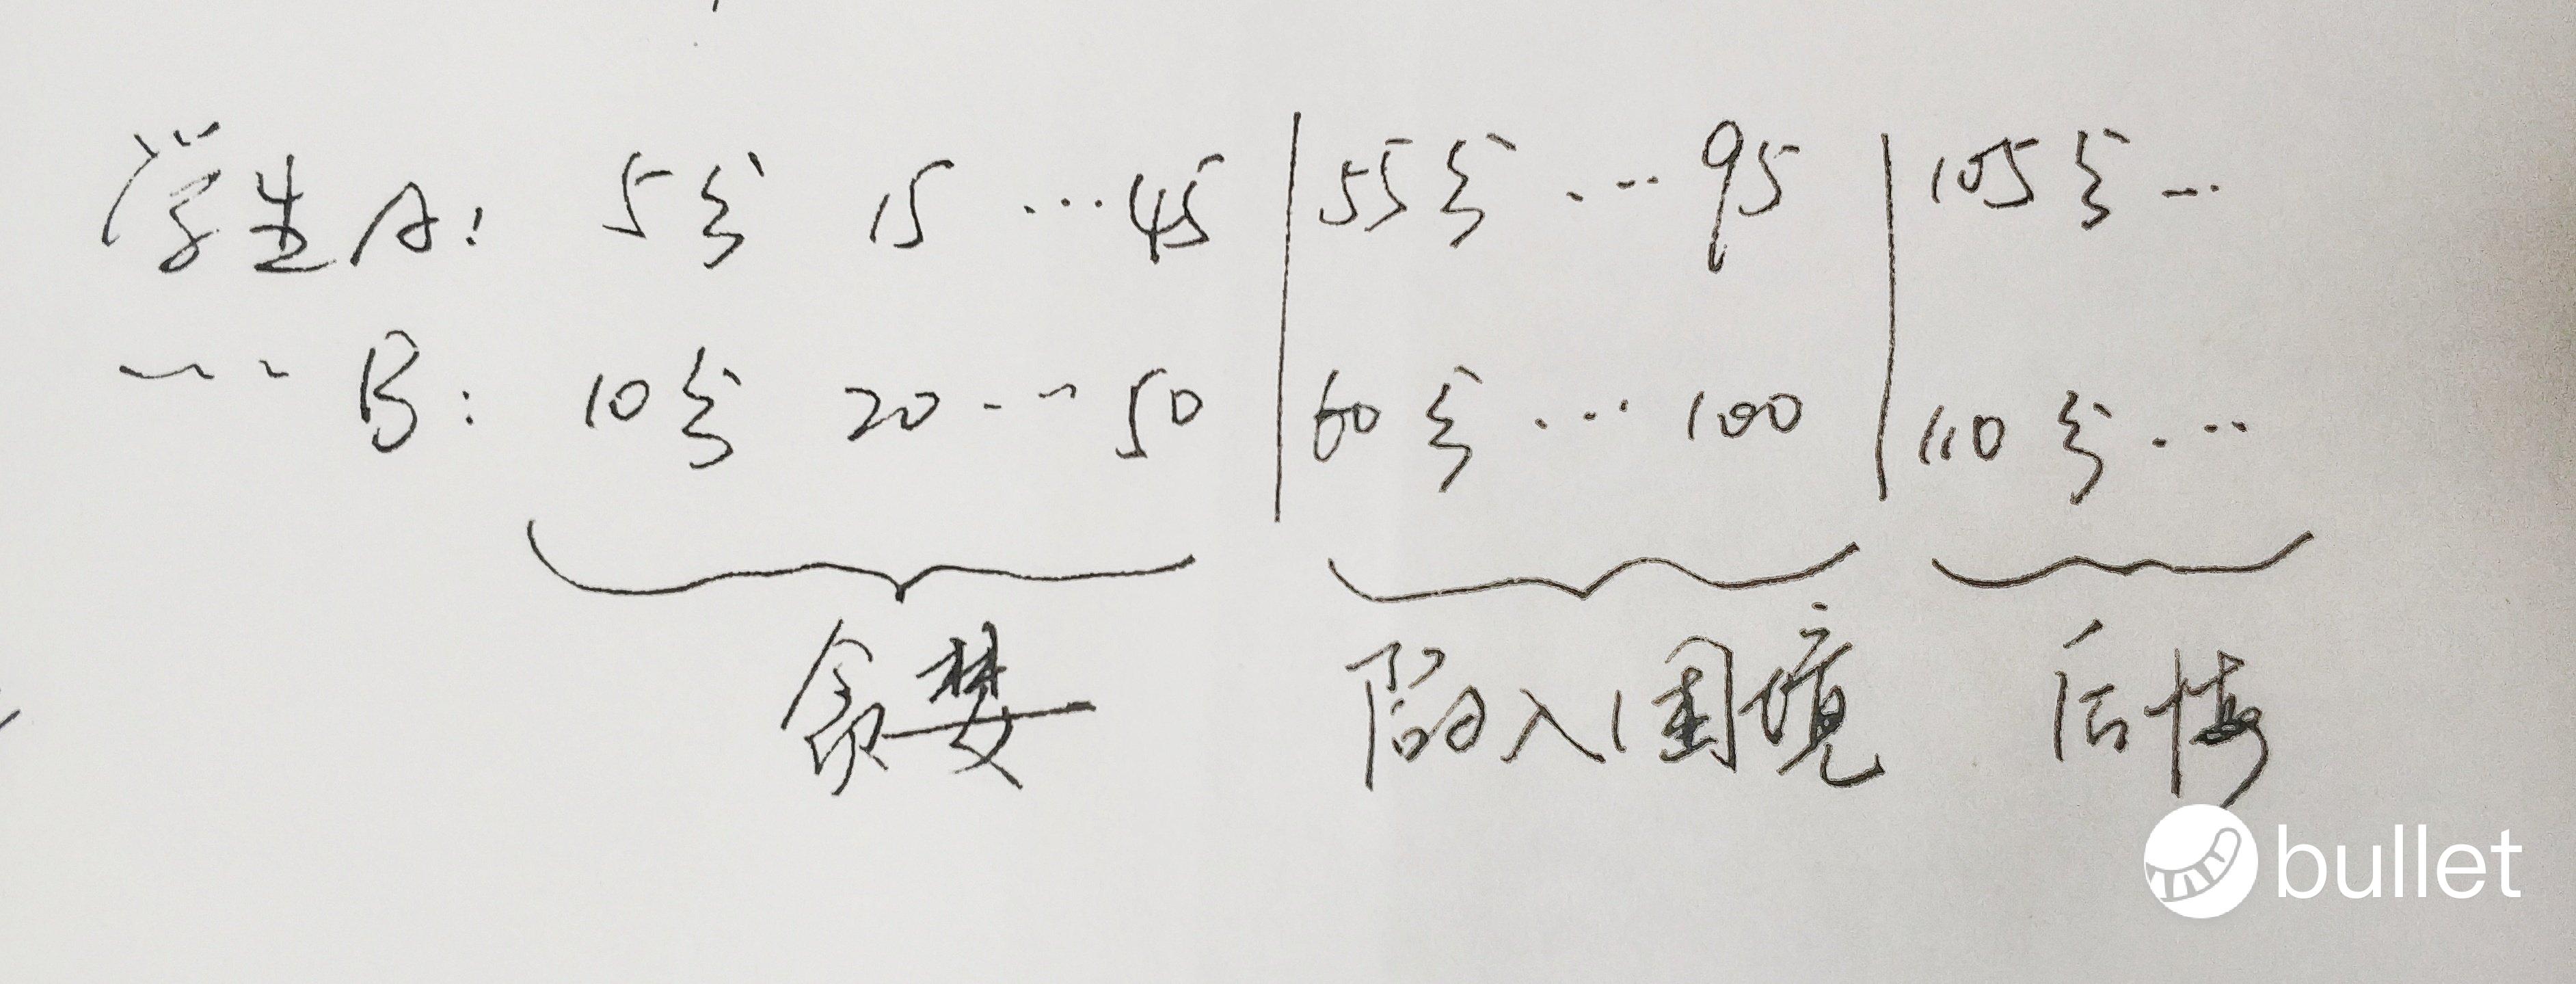 学生A: 5分 15 ...45 55分 ... 95 105分 ...
~ ~ B: 10分 20 ... 50 60分 ... 100 110分 ...
贪婪 陷入困境 后悔
bullet